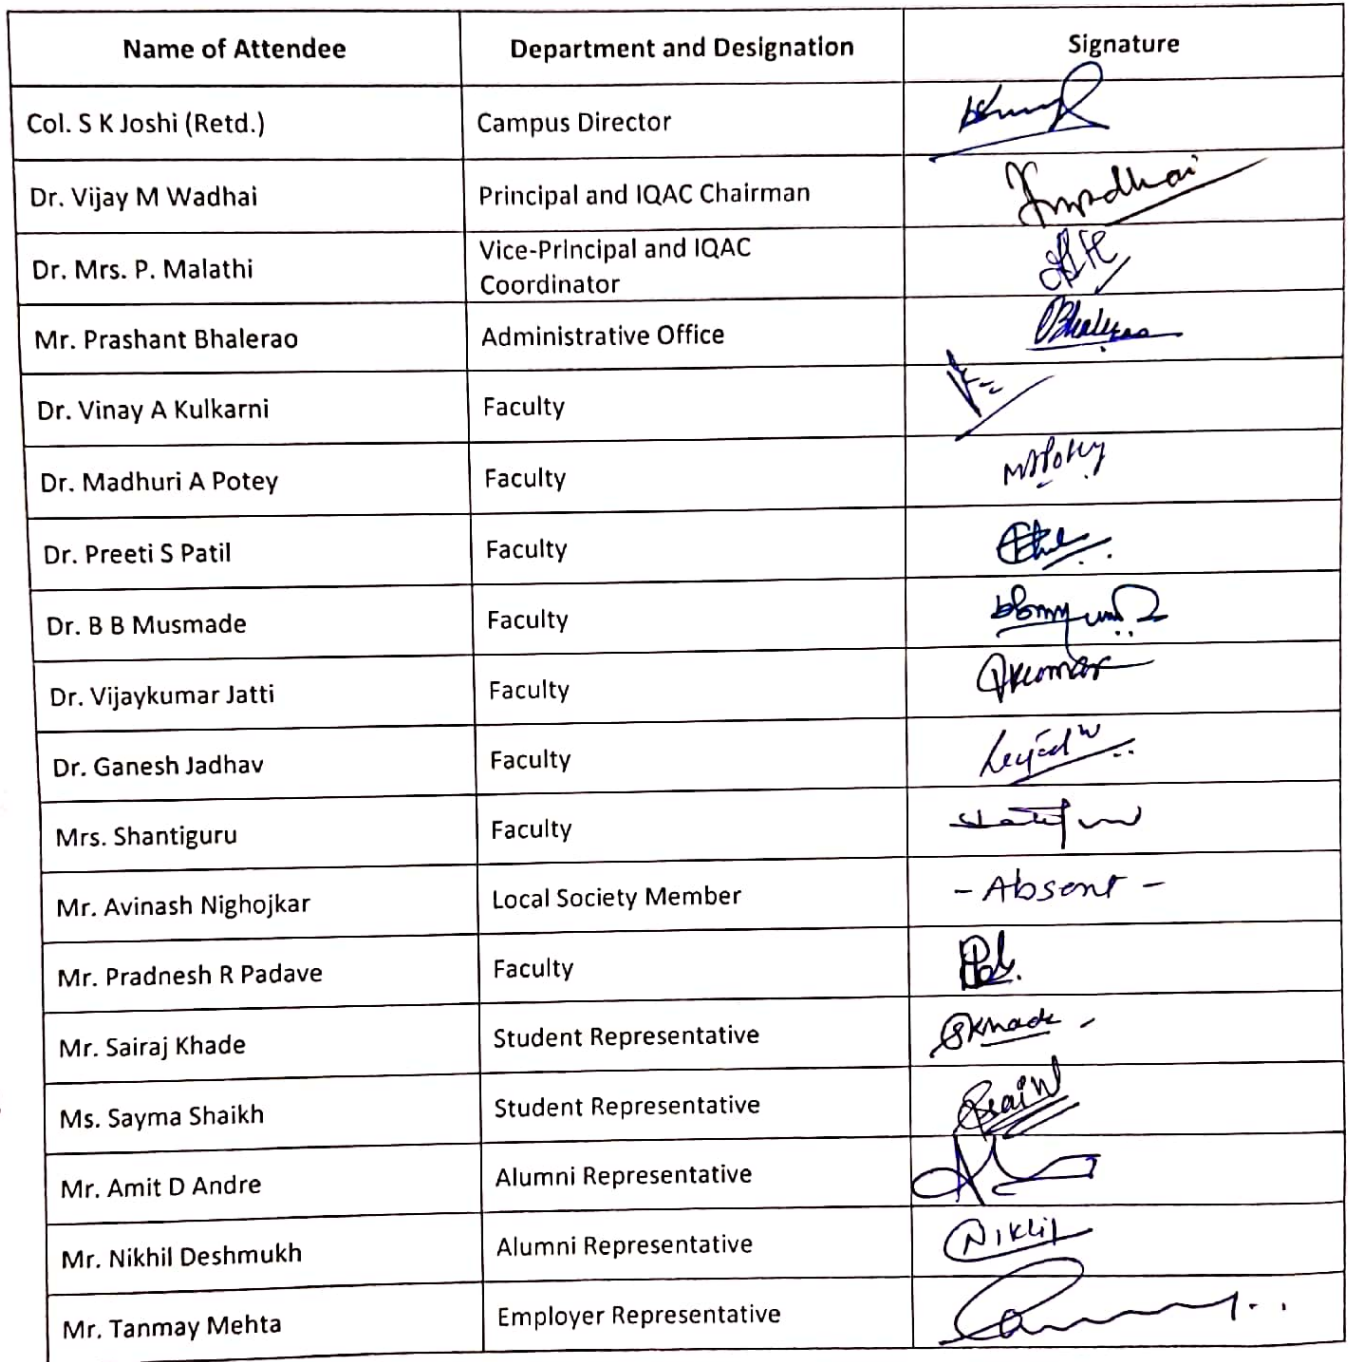 Name of Attendee Department and Designation Signature
Col. S K Joshi (Retd.) Campus Director
Dr. Vijay M Wadhai Principal and IQAC Chairman
Dr. Mrs. P. Malathi Vice-Principal and IQAC
Coordinator
Mr. Prashant Bhalerao Administrative Office
Dr. Vinay A Kulkarni Faculty
Dr. Madhuri A Potey Faculty
Dr. Preeti S Patil Faculty
Dr. B B Musmade Faculty
Dr. Vijaykumar Jatti Faculty
Dr. Ganesh Jadhav Faculty
Mrs. Shantiguru Faculty
Mr. Avinash Nighojkar Local Society Member - Absent -
Mr. Pradnesh R Padave Faculty
Mr. Sairaj Khade Student Representative
Ms. Sayma Shaikh Student Representative
Mr. Amit D Andre Alumni Representative
Mr. Nikhil Deshmukh Alumni Representative
Mr. Tanmay Mehta Employer Representative